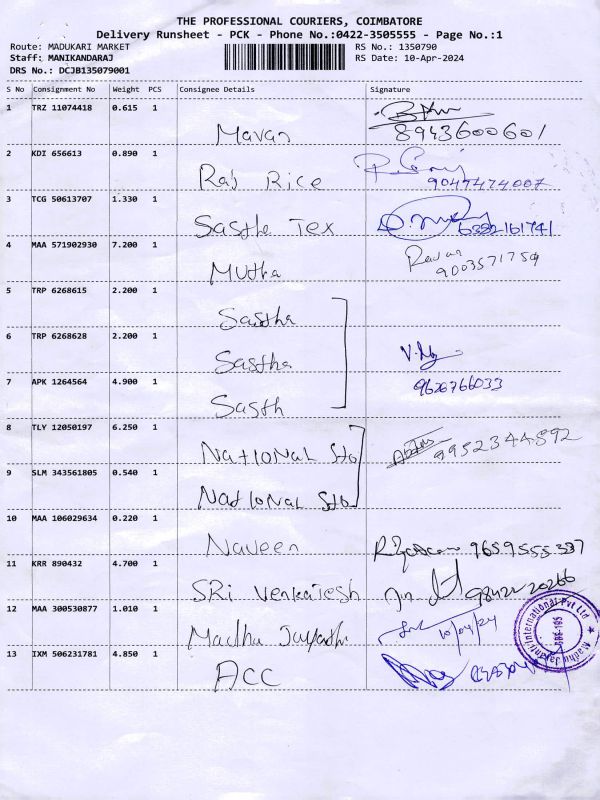 THE PROFESSIONAL COURIERS, COIMBATORE
Delivery Runsheet - PCK - Phone No.:0422-3505555 - Page No.:1
Route: MADUKARI MARKET RS No.: 1350790
Staff: MANIKANDARAJ RS Date: 10-Apr-2024
DRS No.: DCJB135079001
S No Consignment No Weight PCS Consignee Details Signature
1 TRZ 11074418 0.615 1
Mavan 8943600601
2 KDI 656613 0.890 1
Raj Rice 9047474007
3 TCG 50613707 1.330 1
Sasthe Tex 6382161741
4 MAA 571902930 7.200 1
Mutha 9003571759
5 TRP 6268615 2.200 1
Sastha
6 TRP 6268628 2.200 1
Sastha
7 APK 1264564 4.900 1 9626766033
Sasth
8 TLY 12050197 6.250 1
National Sto 9952344892
9 SLM 343561805 0.540 1
National Sto
10 MAA 106029634 0.220 1
Naveen 9659555337
11 KRR 890432 4.700 1
SRi Venkatesh 98422 20266
12 MAA 300530877 1.010 1
Madhu 10/04/24
13 IXM 506231781 4.850 1
ACC
Madhu Jayanti International Pvt Ltd